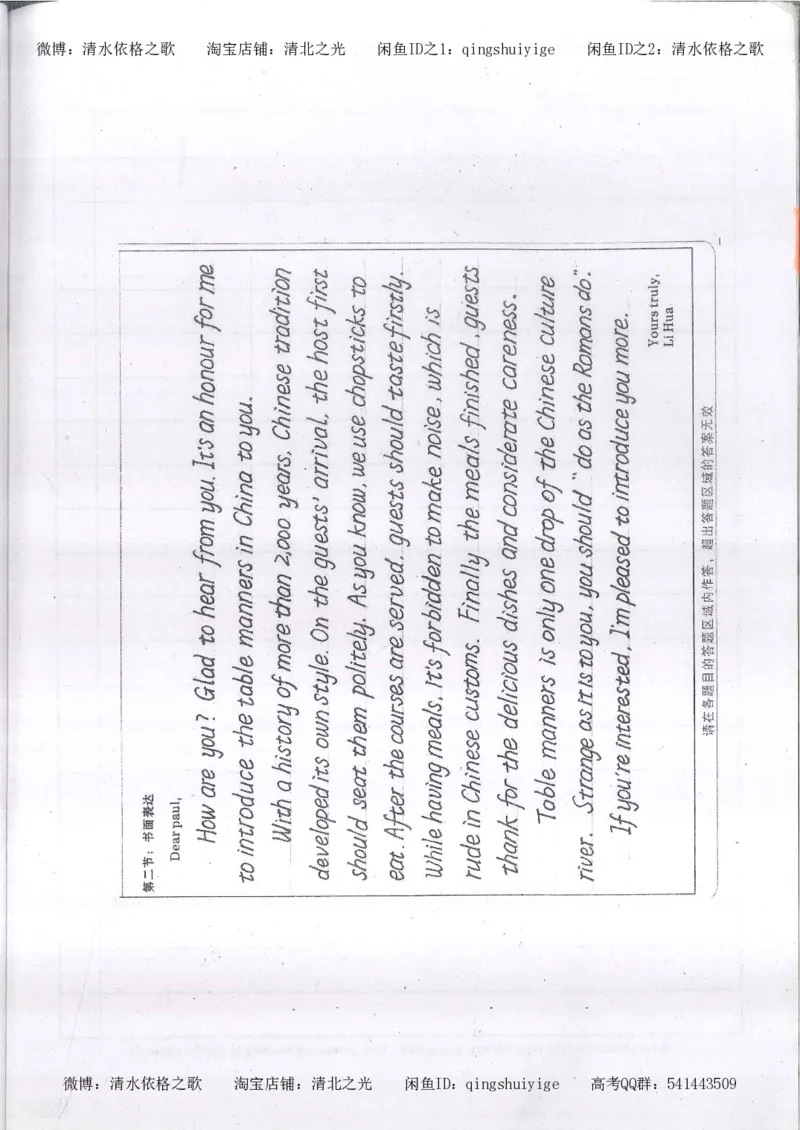 微博：清水依格之歌 淘宝店铺：清北之光 闲鱼ID之1：qingshuiyige 闲鱼ID之2：清水依格之歌
第二节：书面表达
Dear paul,
How are you? Glad to hear from you. It's an honour for me
to introduce the table manners in China to you.
With a history of more than 2,000 years, Chinese tradition
developed its own style. On the guests' arrival, the host first
should seat them politely. As you know, we use chopsticks to
eat. After the courses are served, guests should taste firstly.
While having meals, it's forbidden to make noise, which is
rude in Chinese customs. Finally, the meals finished, guests
thank for the delicious dishes and considerate careness.
Table manners is only one drop of the Chinese culture
river. Strange as it is to you, you should "do as the Romans do".
If you're interested, I'm pleased to introduce you more.
Yours truly,
Li Hua
请在各题目的答题区域内作答，超出答题区域的答案无效
微博：清水依格之歌 淘宝店铺：清北之光 闲鱼ID：qingshuiyige 高考QQ群：541443509